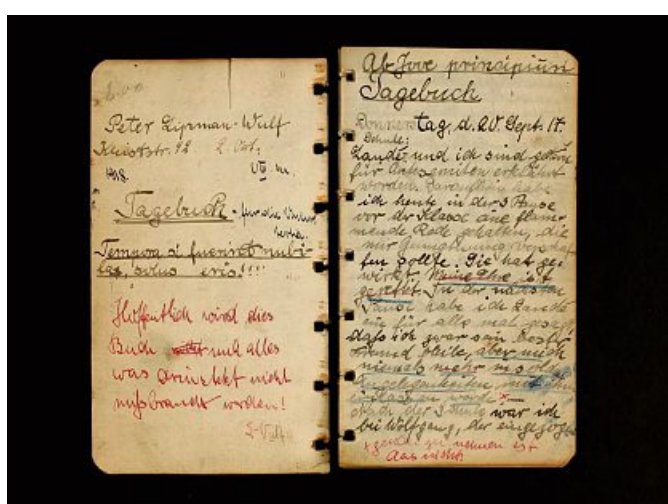 Peter Lipman-Wulf
Kleiststr. 92 2. Okt.
1918.
Tagebuch - für die
Tempora si fuerint nubi-
la, solus eris!!!!
Hoffentlich wird dies
Buch und alles
was drin steht nicht
mißbraucht werden!
Ab Jove principium
Tagebuch
Donnerstag, d. 20. Sept. 17.
Schule:
Lande und ich sind gestern
für Antisemiten erklärt
worden. Daraufhin habe
ich heute in der 3 Pause
vor der Klasse eine flam-
mende Rede gehalten, die
mir Genugtuung verschaf-
fen sollte. Sie hat ge-
wirkt. Meine Ehre ist
gerettet. In der nächsten
Pause habe ich Lande
ein für alle mal gesagt,
daß ich zwar sein bester
Freund bleibe, aber mich
niemals mehr in solche
Angelegenheiten mit ihm
einlassen werde
Nach der Schule war ich
bei Wolfgang, der eingezogen
zu nehmen ist
das nicht.